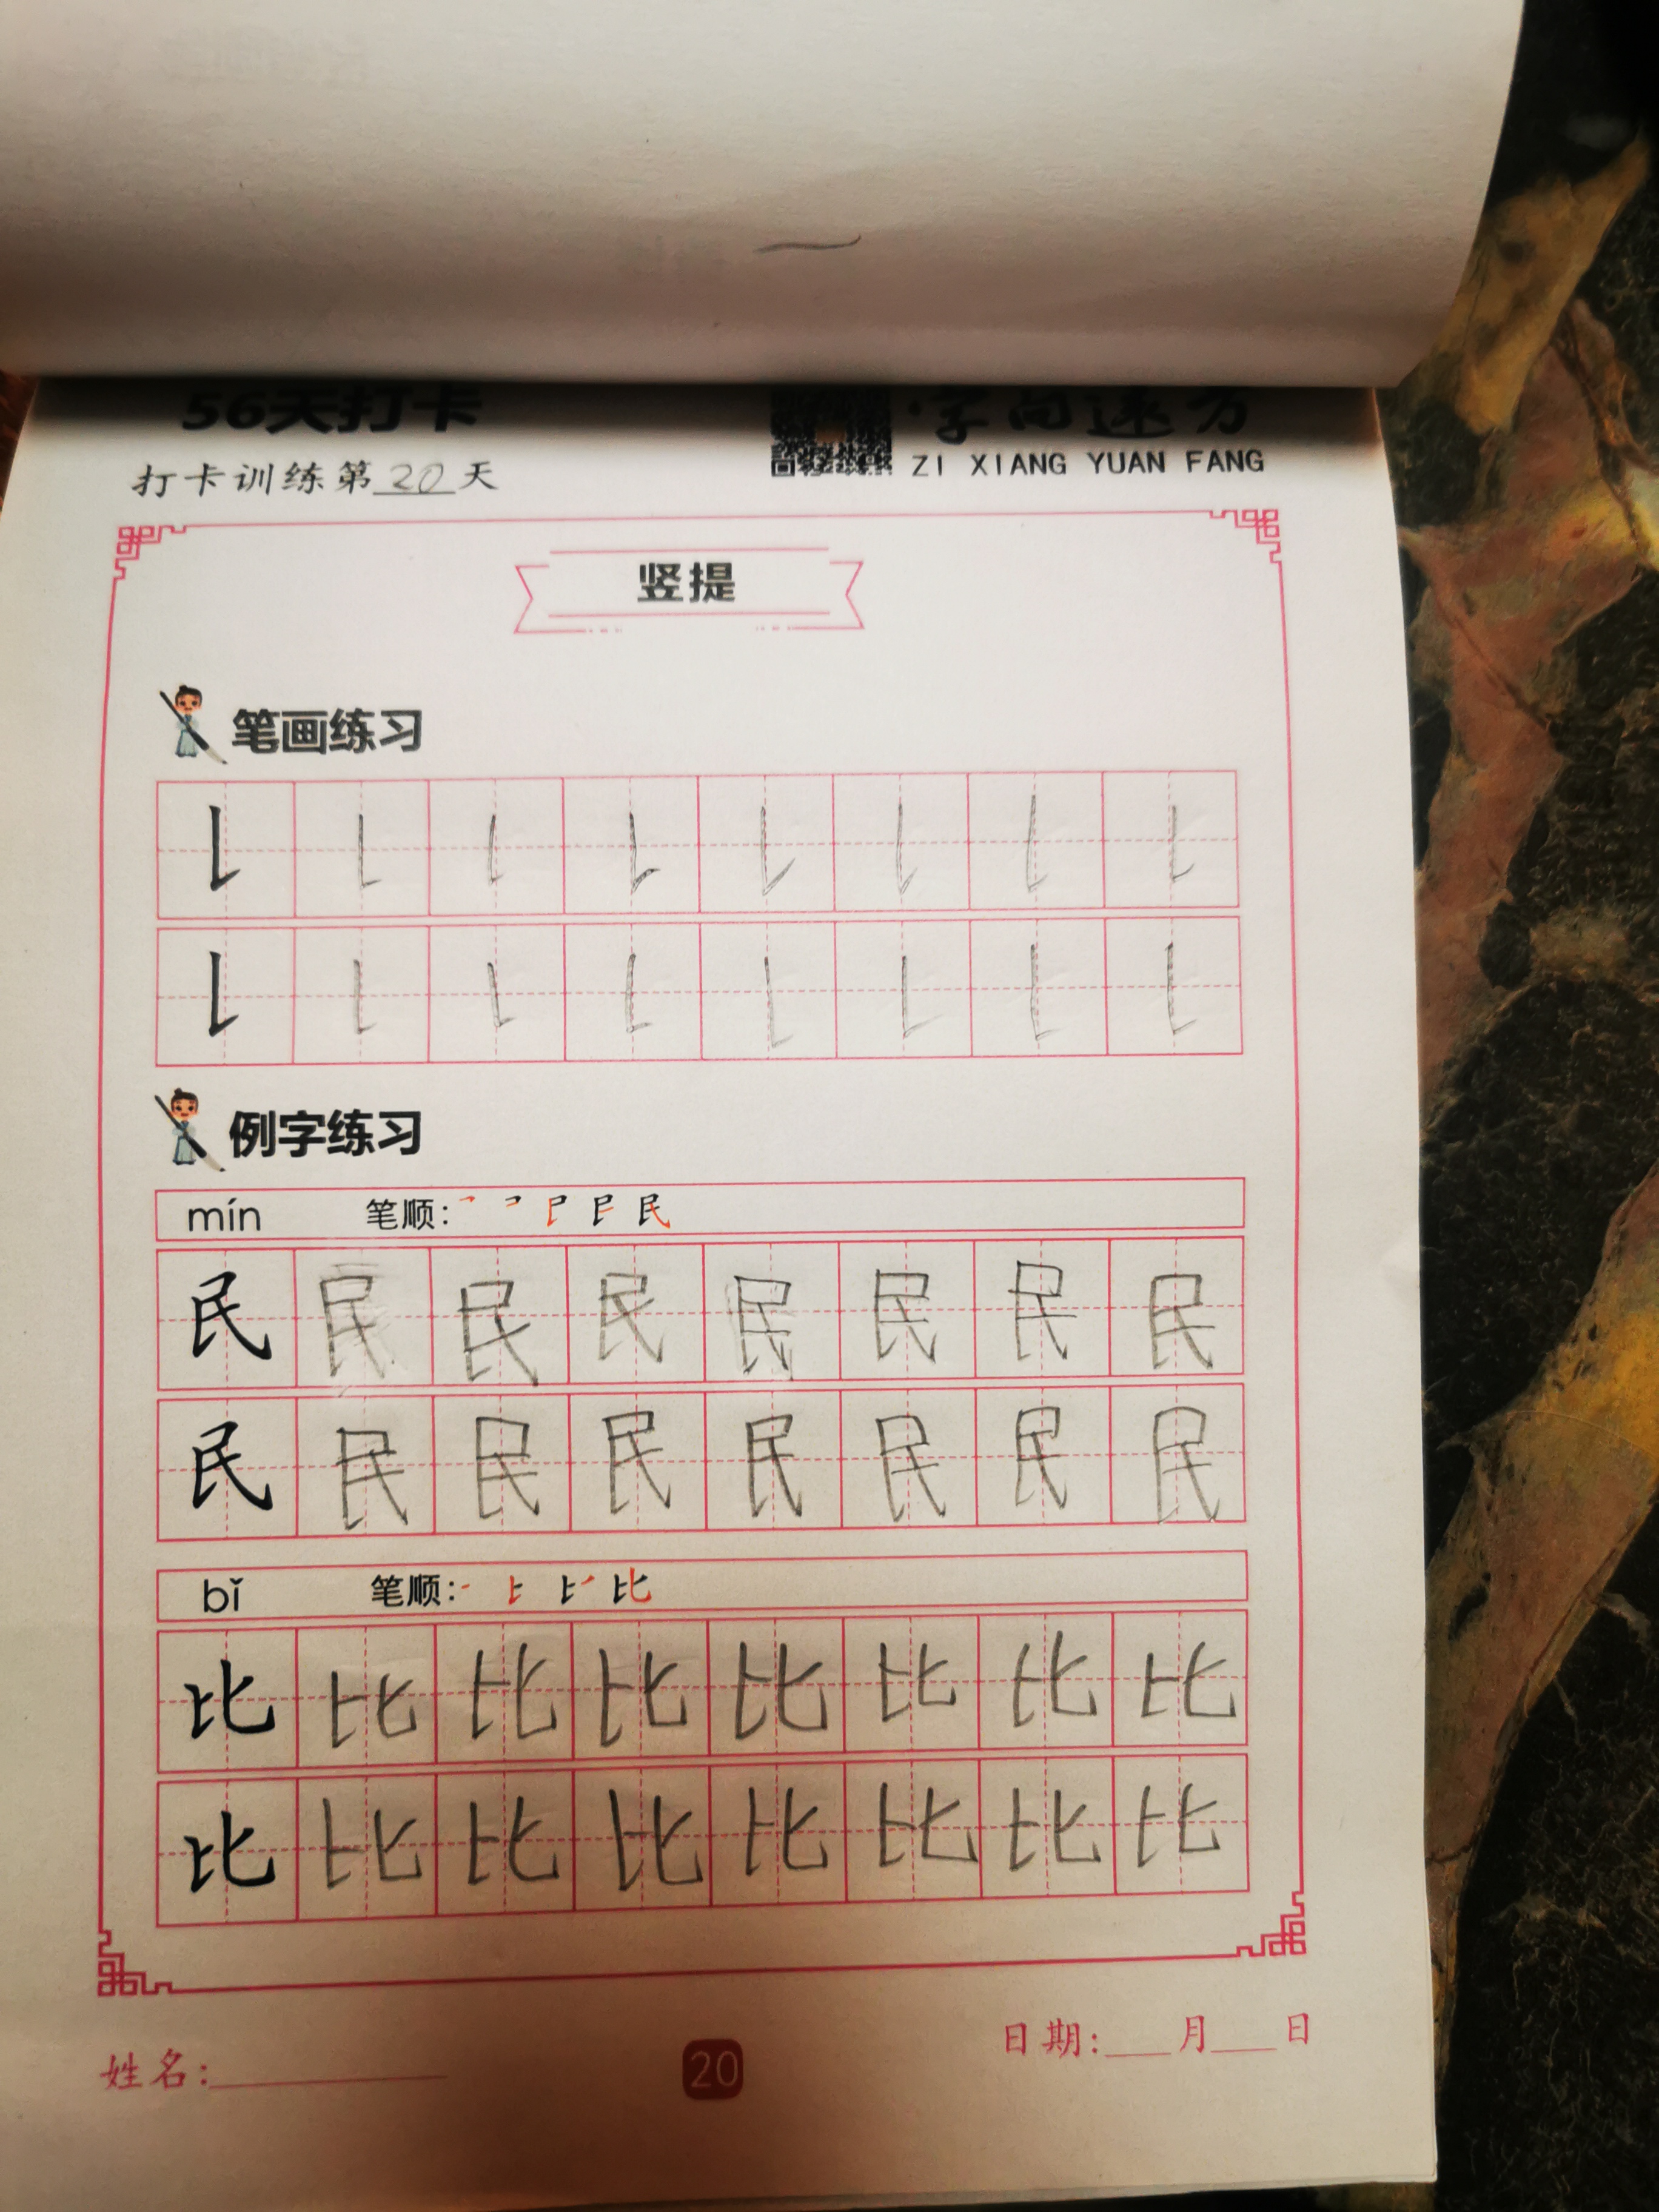 56天打卡
字向远方
ZI XIANG YUAN FANG
打卡训练第20天
竖提
笔画练习
例字练习
mín 笔顺:
民 民 民 民 民 民 民 民
民 民 民 民 民 民 民 民
bǐ 笔顺: 比
比 比 比 比 比 比 比 比
比 比 比 比 比 比 比 比
姓名:
20
日期: 月 日